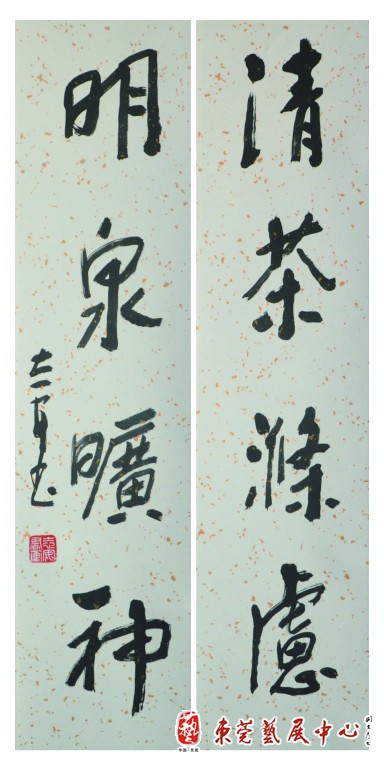 清茶滌慮
明泉曠神
東莞藝展中心